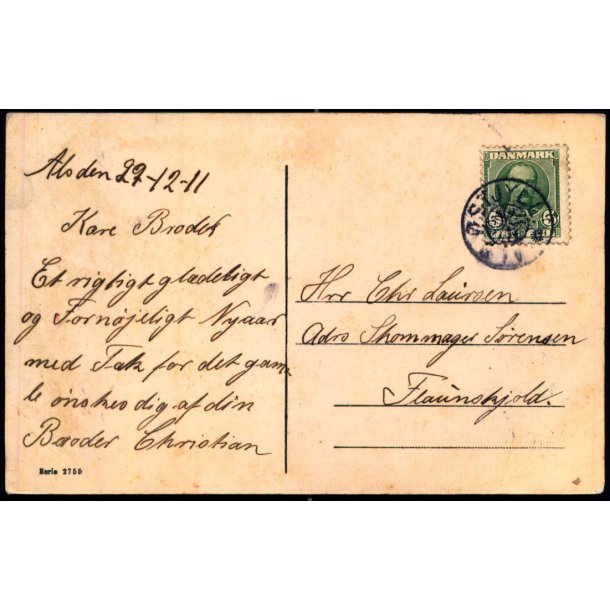 Als den 29-12-11
Kare Broder
Et rigtigt glædeligt
og Fornøjeligt Nyaar
med Tak for det gam-
le ønskes dig af din
Broder Christian
Serie 2755
DANMARK
5 5
Hrr Chr Laursen
Adrs Skommager Sørensen
Flaunskjold.